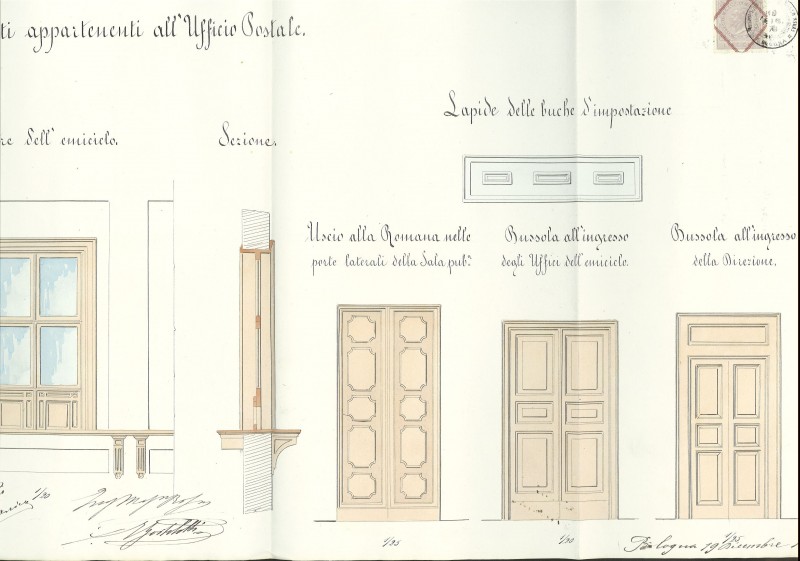 ti appartenenti all'Ufficio Postale.
re dell' emiciclo.
Sezione.
Lapide delle buche d'impostazione
Uscio alla Romana nelle
porte laterali della Sala pub.ª
Bussola all'ingresso
degli Uffici dell'emiciclo.
Bussola all'ingresso
della Direzione.
1/20
1/25
1/20
1/25
Bologna 19 Dicembre 1